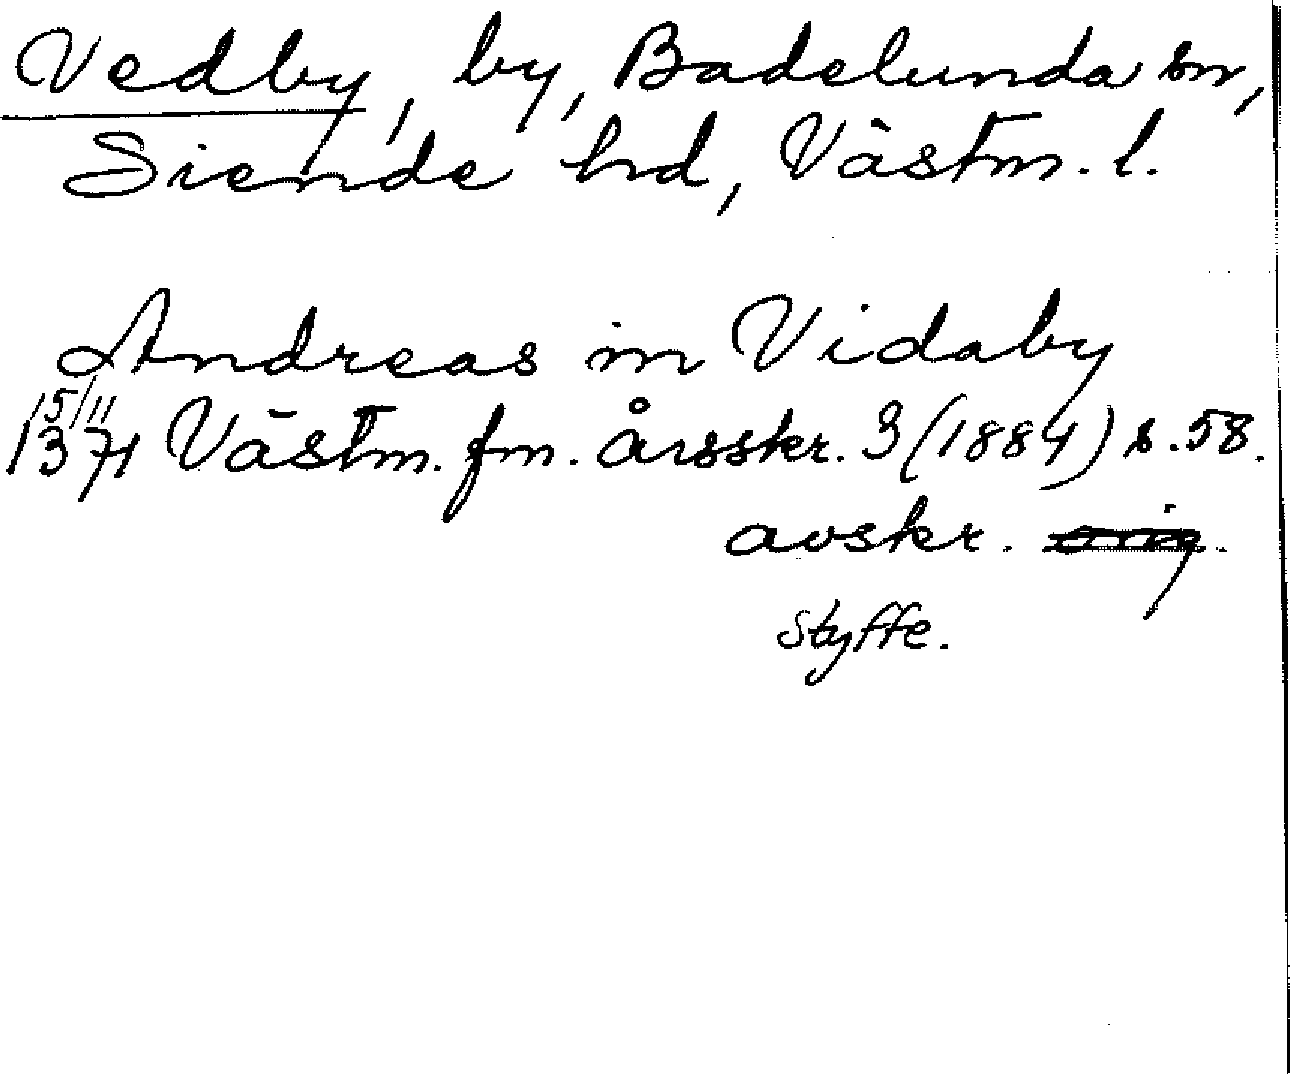 Vedby, by, Badelunda sn,
Siende hd, Västm. l.
Andreas in Vidaby
15/11
1371 Västm. fm. årsskr. 3 (1884) s. 58.
avskr. orig.
Styffe.